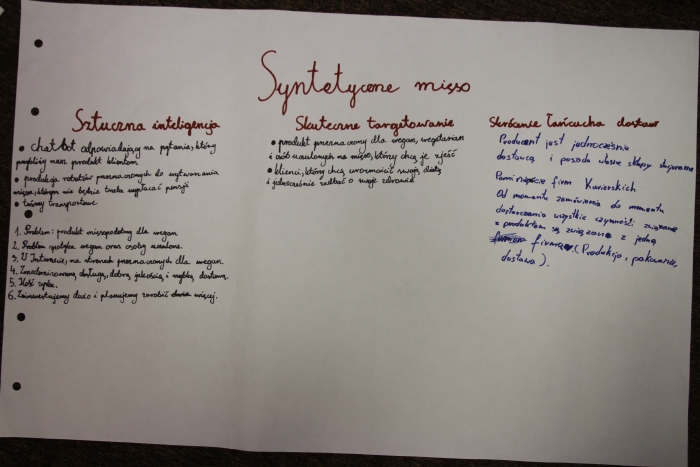 Syntetyczne mięso
Sztuczna inteligencja
• chatbot odpowiadający na pytania, który
przybliży nasz produkt klientom
• produkcja robotów przeznaczonych do wytwarzania
mięsa, którym nie będzie trzeba wypłacać pensji
• taśmy transportowe
1. Problem: produkt niespodobny dla wegan
2. Problem spotyka wegan oraz osoby uczulone.
3. W Internecie, na stronach przeznaczonych dla wegan.
4. obsługą, dobrą jakością i szybką dostawą.
5. Ilość
6. Zainwestujemy dużo i planujemy zarobić więcej.
Skuteczne targetowanie
• produkt przeznaczony dla wegan, wegetarian
i osób uczulonych na mięso, który chcą je zjeść
• klienci, który chcą urozmaicić swoją dietę
i jednocześnie zadbać o swoje zdrowie
Skrócenie łańcucha dostaw
Producent jest jednocześnie
dostawcą i posiada własne sklepy stacjonarne
Pominięcie firm Kurierskich
Od momentu zamówienia do momentu
dostarczenia wszystkie czynności związane
z produktem są związane z jedną
firmą (Produkcja, pakowanie,
dostawa).